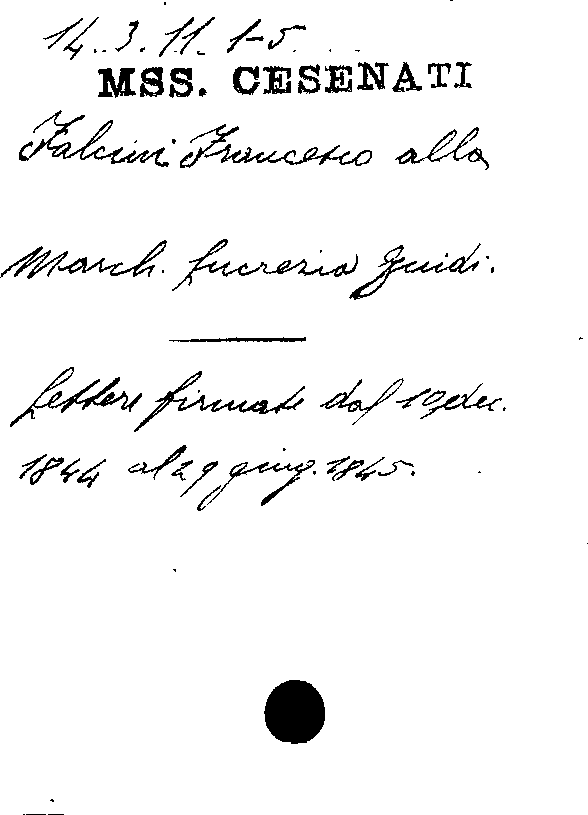 14.3.11.1-5
MSS. CESENATI
Falcini Francesco alla
March. Lucrezia Guidi.
Lettere firmate dal 10 dec.
1844 al 29 giug. 1845.